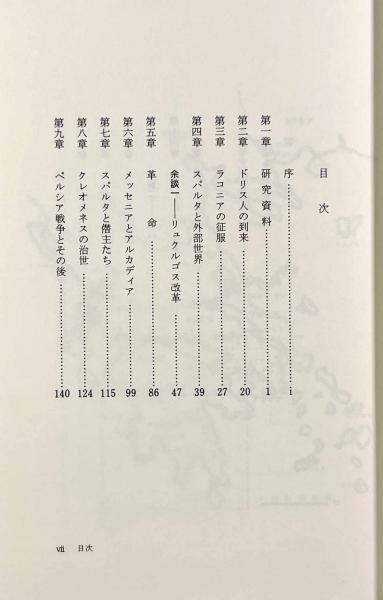 目次
序……………………………i
第一章 研究資料……………………………1
第二章 ドリス人の到来……………………………20
第三章 ラコニアの征服……………………………27
第四章 スパルタと外部世界……………………………39
余談一――リュクルゴス改革……………………………47
第五章 革命……………………………86
第六章 メッセニアとアルカディア……………………………99
第七章 スパルタと僭主たち……………………………115
第八章 クレオメネスの治世……………………………124
第九章 ペルシア戦争とその後……………………………140
vii 目次